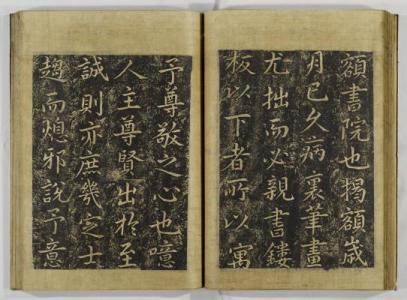 額書院也揭額歲
月已久病裏筆畫
尤拙而必親書鏤
板以下者所以寓
予尊敬之心也噫
人主尊賢出於至
誠則亦庶幾之士
趨而熄邪說予意